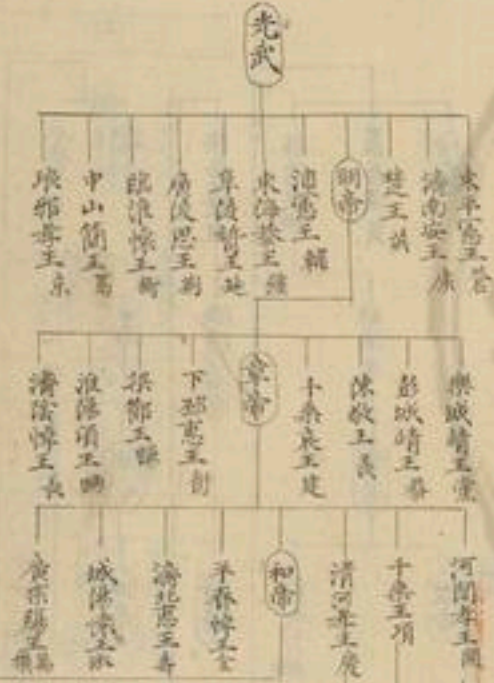 光武
東平憲王蒼
濟南安王康
楚王英
明帝
沛憲王輔
東海恭王彊
阜陵質王延
廣陵思王荊
臨淮懷王衡
中山簡王焉
琅邪孝王京
樂城靖王黨
彭城靖王恭
陳敬王羨
千乘哀王建
章帝
下邳惠王衍
梁節王暢
淮陽頃王昞
濟陰悼王長
河間孝王開
千乘王伉
清河孝王慶
和帝
平春悼王全
濟北惠王壽
城陽懷王淑
廣宗殤王萬歲